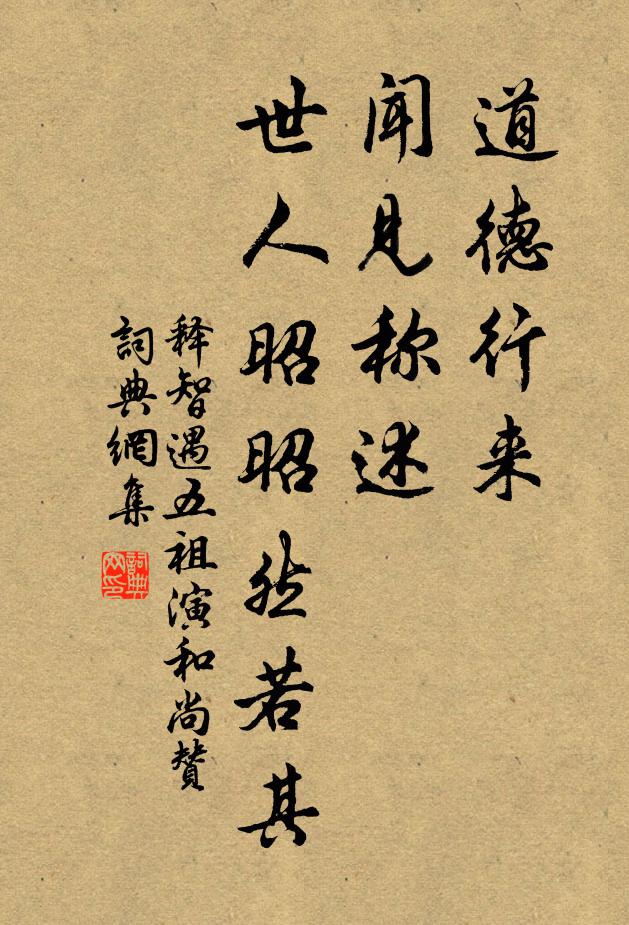 道德行来
闻见称述
世人昭昭然若其
释智遇五祖演和尚赞
詞典網集
詞典網印